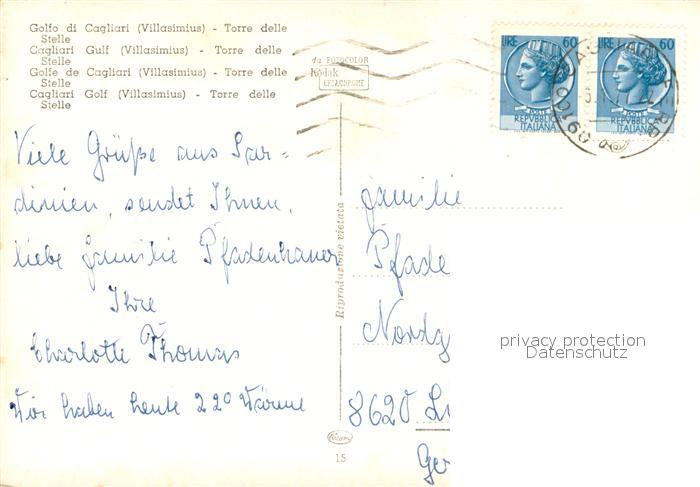 Golfo di Cagliari (Villasimius) - Torre delle
Stelle
Cagliari Gulf (Villasimius) - Torre delle
Stelle
Golfe de Cagliari (Villasimius) - Torre delle
Stelle
Cagliari Golf (Villasimius) - Torre delle
Stelle
da FOTOCOLOR
Kodak
EKTACHROME
LIRE 60
POSTE
REPVBBLICA
ITALIANA
LIRE 60
POSTE
REPVBBLICA
ITALIANA
Viele Grüße aus Sar=
dinien, sendet Ihnen,
liebe Familie Pfadenhauer
Ihre
Charlotte Thomas
Wir haben heute 22° Wärme
Riproduzione vietata
15
Familie
Pfade
Nordg
8620 Li
Ger
privacy protection
Datenschutz